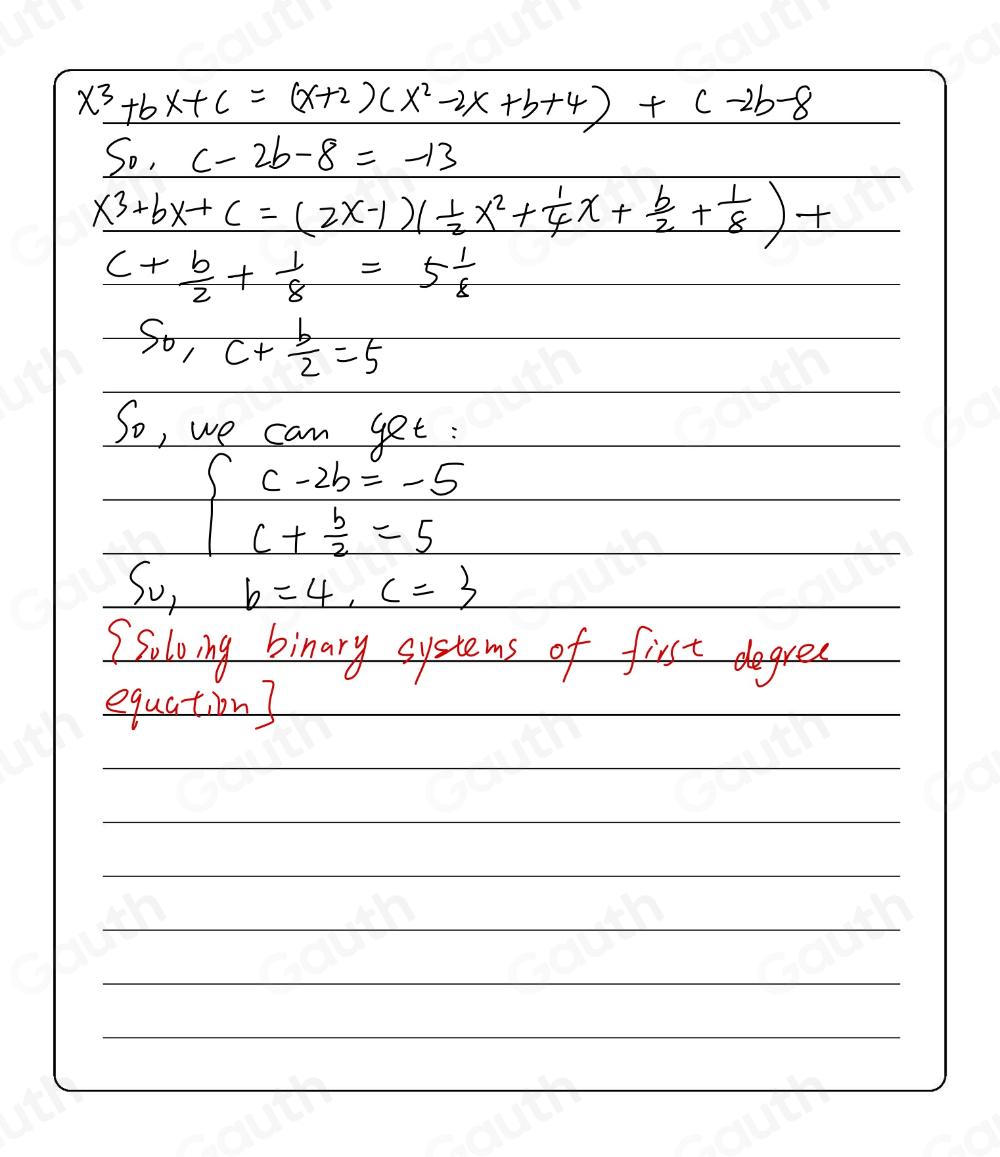 x³+bx+c = (x+2)(x²-2x+b+4) + c-2b-8
So, c-2b-8 = -13
x³+bx+c = (2x-1)(1/2x²+1/4x+b/2+1/8)+
c+b/2+1/8 = 5 1/8
So, c+b/2=5
So, we can get:
{ c-2b=-5
c+b/2=5
So, b=4, c=3
[Solving binary systems of first degree
equation]